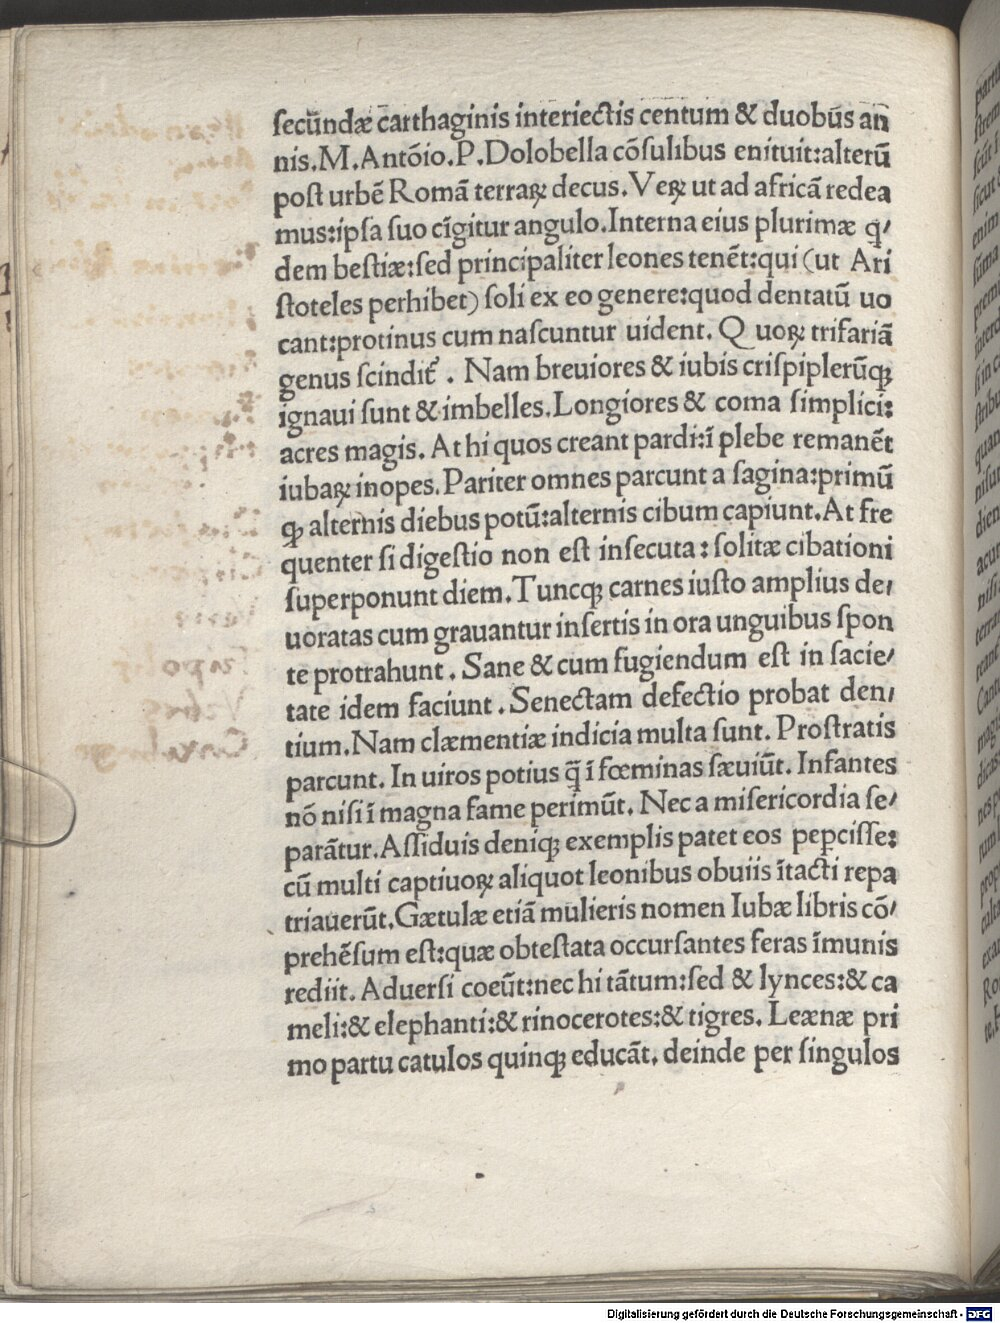 secūndæ carthaginis interiectis centum & duobūs an
nis. M. Antōio. P. Dolobella cōsulibus enituit: alterū
post urbē Romā terraꝝ decus. Veꝝ ut ad africā redea
mus: ipsa suo cīgitur angulo. Interna eius plurimæ q̇/
dem bestiæ: sed principaliter leones tenēt: qui (ut Ari
stoteles perhibet) soli ex eo genere: quod dentatū uo
cant: protinus cum nascuntur uident. Quoꝝ trifariā
genus scindit᷑. Nam breuiores & iubis crispi plerūqꝫ
ignaui sunt & imbelles. Longiores & coma simplici:
acres magis. At hi quos creant pardi: ī plebe remanēt
iubaꝝ inopes. Pariter omnes parcunt a sagina: primū
qꝫ alternis diebus potū: alternis cibum capiunt. At fre
quenter si digestio non est insecuta: solitæ cibationi
superponunt diem. Tuncqꝫ carnes iusto amplius de/
uoratas cum grauantur insertis in ora unguibus spon
te protrahunt. Sane & cum fugiendum est in sacie/
tate idem faciunt. Senectam defectio probat den/
tium. Nam clæmentiæ indicia multa sunt. Prostratis
parcunt. In uiros potius q̄ ī fœminas sæuiūt. Infantes
nō nisi ī magna fame perimūt. Nec a misericordia se/
parātur. Assiduis deniqꝫ exemplis patet eos peꝑcisse:
cū multi captiuoꝝ aliquot leonibus obuiis ītacti repa
triauerūt. Gætulæ etiā mulieris nomen Iubæ libris cō/
prehēsum est: quæ obtestata occursantes feras īmunis
rediit. Aduersi coeūt: nec hi tātum: sed & lynces: & ca
meli: & elephanti: & rinocerotes: & tigres. Leænæ pri
mo partu catulos quinqꝫ educāt. deinde per singulos
Digitalisierung gefördert durch die Deutsche Forschungsgemeinschaft - DFG